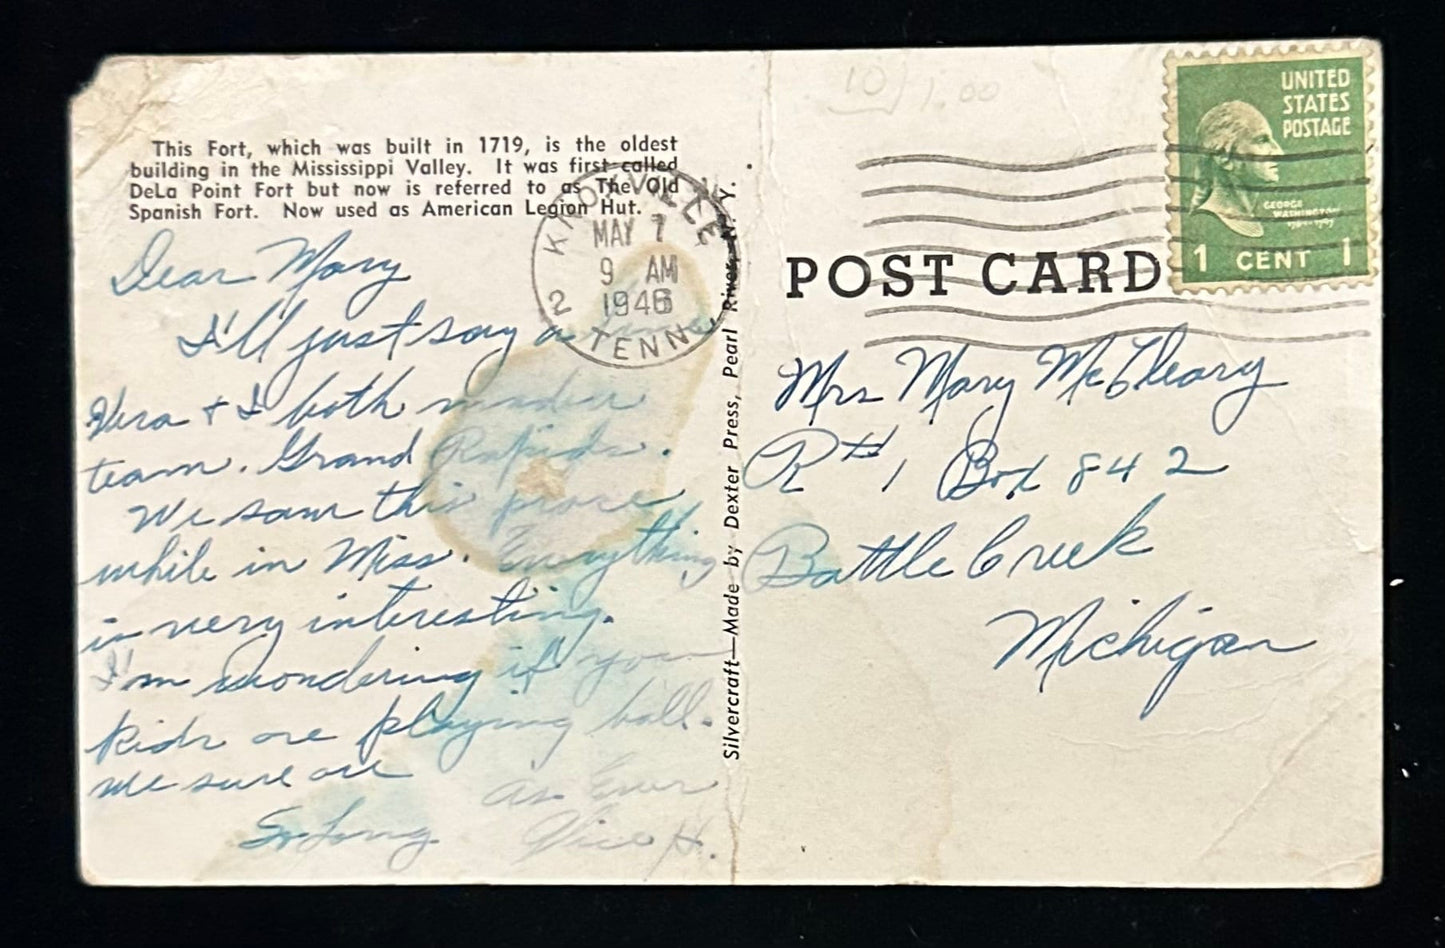 This Fort, which was built in 1719, is the oldest
building in the Mississippi Valley. It was first called
DeLa Point Fort but now is referred to as The Old
Spanish Fort. Now used as American Legion Hut.
Dear Mary
I'll just say a line
Vera + I both made a
team. Grand Rapids.
We saw this place
while in Miss. Everything
is very interesting.
I'm wondering if you
kids are playing ball.
We sure are
So Long
as Ever
H.
KNOXVILLE
MAY 7
9 AM
1946
2 TENN.
Silvercraft—Made by Dexter Press, Pearl River, N. Y.
10 1.00
UNITED
STATES
POSTAGE
GEORGE
WASHINGTON
1 CENT 1
POST CARD
Mrs Mary McCleary
R#1 Box 842
Battle Creek
Michigan